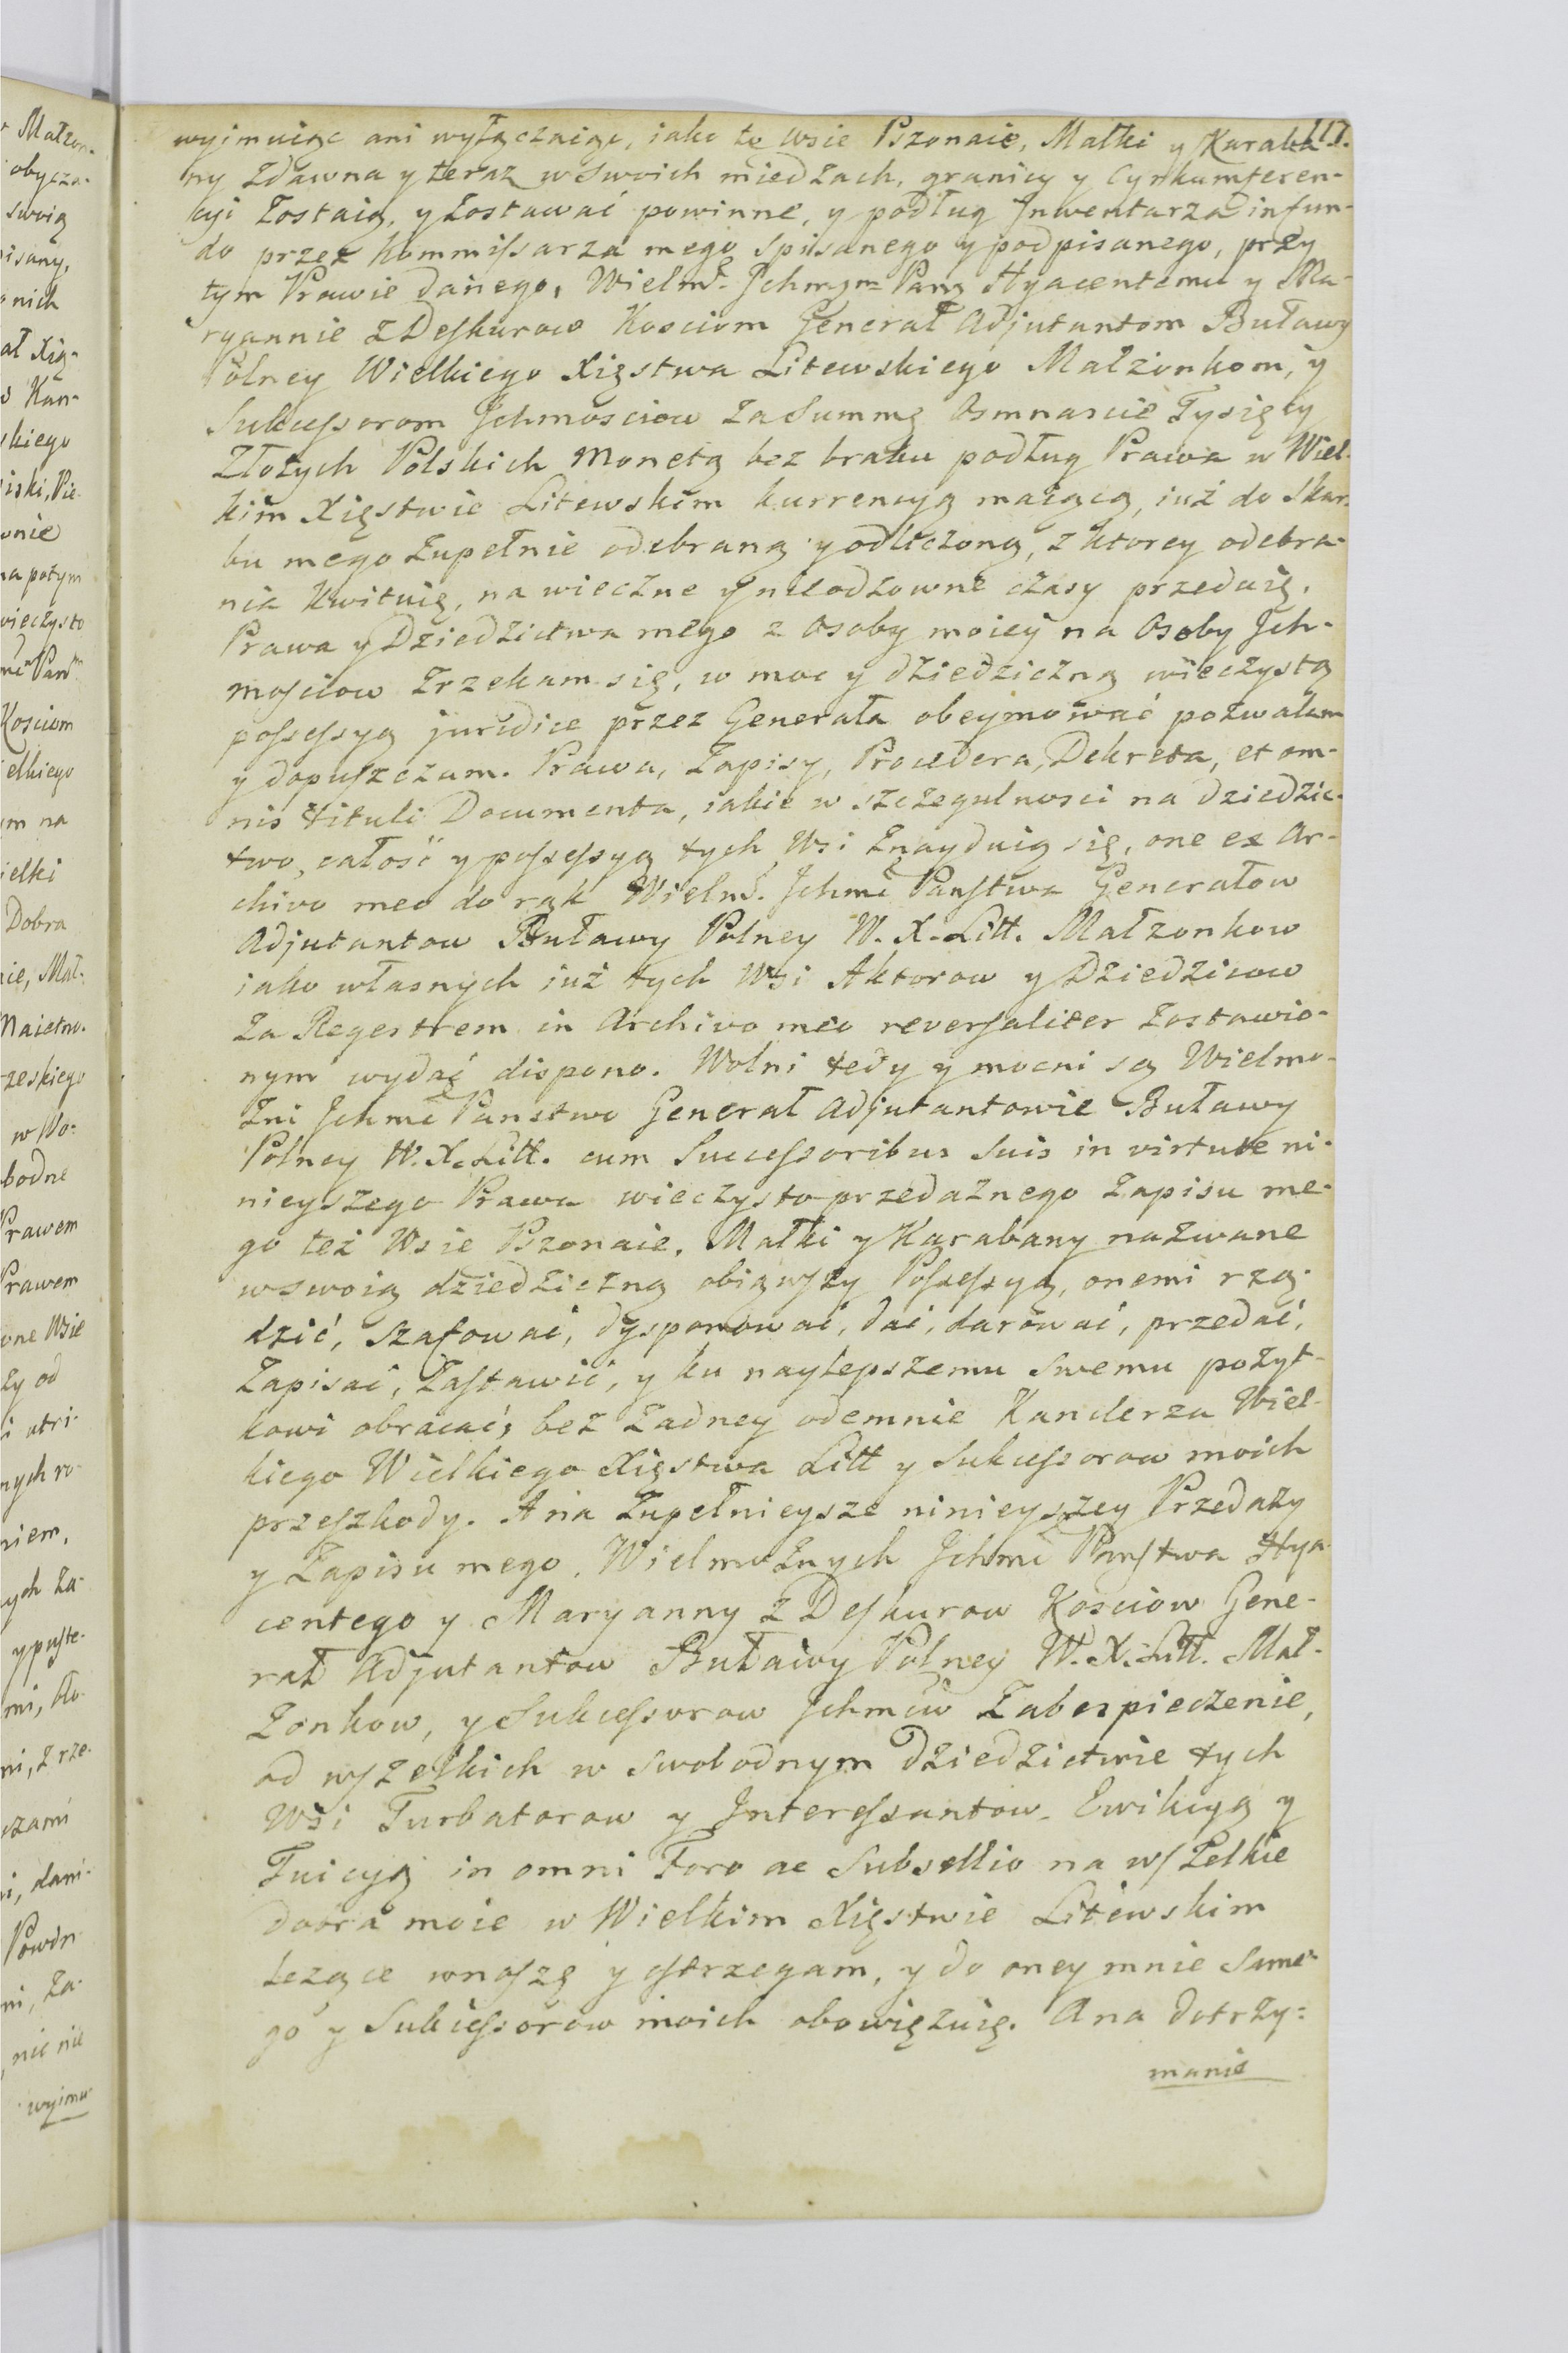 117.
wyjmuiąc ani wyłączaiąc, iako te Wsie Pzonaie, Małki y Karaba-
ny zdawna y teraz w swoich miedzach, granicy y Cyrkumferen-
cyi zostaią, y zostawać powinne, y podług Jnwentarza infun-
do przez Kommissarza mego spisanego y podpisanego, przy
tym Prawie danego, Wielmż. Jchmym Panŋ Hyacentemu y Ma-
ryannie z Deskurow Kosciom Generał Adjutantom Buławy
Polney Wielkiego Xięstwa Litewskiego Małzonkom, y
Sukcessorom Jchmościow za Summę Osmnascie Tysięcy
Złotych Polskich Monetą bez braku podług Prawa w Wiel-
kim Xięstwie Litewskim kurrencyą maiącą, iuż do Skar-
bu mego zupełnie odebraną y odliczoną, z ktorey odebra-
nia kwituię, na wieczne y nieodzowne czasy przedaię.
Prawa y Dziedzictwa mego z Osoby moiey na Osoby Jch-
mościow zrzekam się, w moc y dziedziczną wieczystą
possessyą juridice przez Generała obeymować pozwalam
y dopuszczam. Prawa, Zapisy, Procedera, Dekreta, et om-
nis tituli Documenta, iakie w szczegulności na dziedzic-
two, całość y possessyą tych Wsi znayduią się, one ex Ar-
chivo meo do rąk Wielmż. Jchmć Państwa Generałow
Adjutantow Buławy Polney W. X. Litt. Małzonkow
iako własnych iuż tych Wsi Aktorow y Dziedzicow
za Regestrem in Archivo meo reversaliter zostawio-
nym wydać dispono. Wolni tedy y mocni są Wielmo-
żni Jchmć Państwo Generał Adjutantowie Buławy
Polney W. X. Litt. cum Successoribus Suis in virtute ni-
nieyszego Prawa wieczysto przedaznego Zapisu me-
go też Wsie Pzonaie, Małki y Karabany nazwane
w swoią dziedziczną obiąwszy Possessyą, onemi rzą-
dzić, szafować, dysponować, dać, darować, przedać,
zapisać, zastawić, y ku naylepszemu swemu pożyt-
kowi obracać, bez żadney odemnie Kanclerza Wiel-
kiego Wielkiego Xięstwa Litt y Sukcessorow moich
przeszkody. A na zupełnieysze ninieyszey Przedaży
y Zapisu mego, Wielmożnych Jchmć Państwa Hya-
centego y Maryanny z Deskurow Kosciow Gene-
rał Adjutantow Buławy Polney W. X. Litt. Mał-
zonkow, y Sukcessorow Jchmciow zabespieczenie,
od wszelkich w swobodnym dziedzictwie tych
Wsi Turbatorow y Jnteressantow. Ewikcyą y
Tuicyą in omni Foro ac Subsellio na wszelkie
dobra moie w Wielkim Xięstwie Litewskim
lezące wnoszę y ostrzegam, y do oney mnie same-
go y Sukcessorow moich obowięzuię. A na dotrzy-
manie